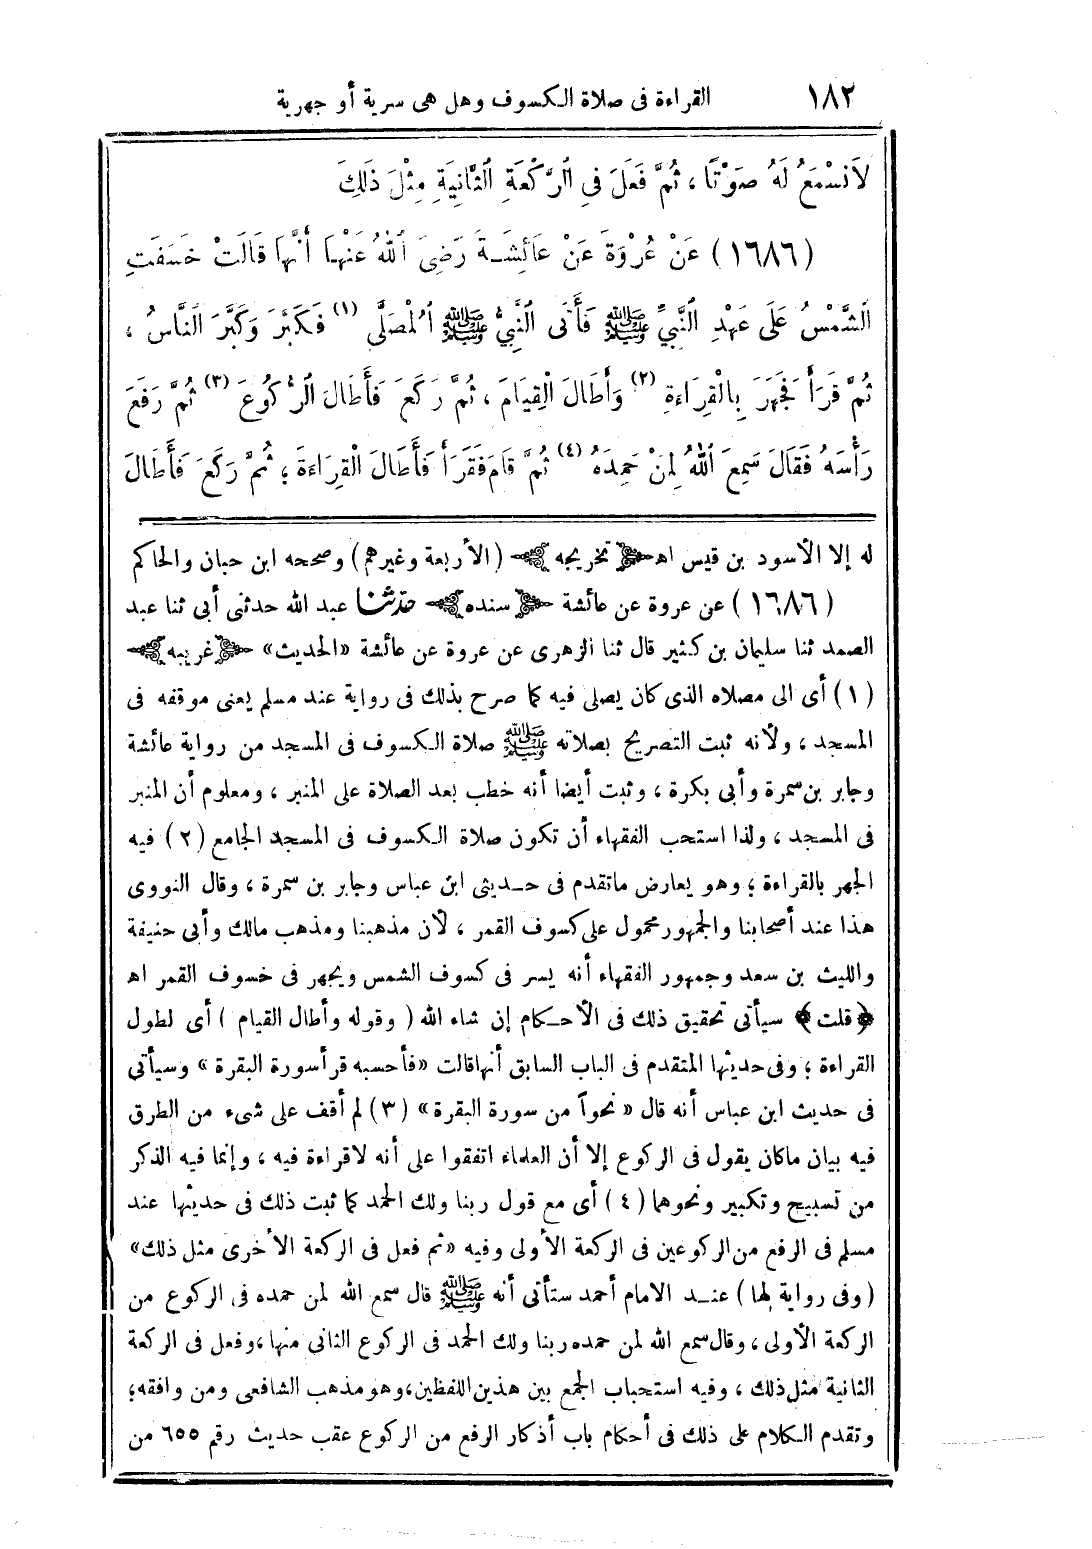 ١٨٢ القراءة فى صلاة الكسوف وهل هى سرية أو جهرية
لَا نَسْمَعُ لَهُ صَوْتًا ، ثُمَّ فَعَلَ فِى الرَّكْعَةِ الثَّانِيَةِ مِثْلَ ذَلِكَ
(١٦٨٦) عَنْ عُرْوَةَ عَنْ عَائِشَةَ رَضِىَ اللهُ عَنْهَا أَنَّهَا قَالَتْ خَسَفَتِ
الشَّمْسُ عَلَى عَهْدِ النَّبِيِّ ﷺ فَأَتَى النَّبِيُّ ﷺ الْمُصَلَّى (١) فَكَبَّرَ وَكَبَّرَ النَّاسُ ،
ثُمَّ قَرَأَ فَجَهَرَ بِالْقِرَاءَةِ (٢) وَأَطَالَ الْقِيَامَ ، ثُمَّ رَكَعَ فَأَطَالَ الرُّكُوعَ (٣) ثُمَّ رَفَعَ
رَأْسَهُ فَقَالَ سَمِعَ اللهُ لِمَنْ حَمِدَهُ (٤) ثُمَّ قَامَ فَقَرَأَ فَأَطَالَ الْقِرَاءَةَ ؛ ثُمَّ رَكَعَ فَأَطَالَ
له إلا الأسود بن قيس اھ ﴿ تخريجه ﴾ (الأربعة وغيرهم) وصححه ابن حبان والحاكم
(١٦٨٦) عن عروة عن عائشة ﴿ سنده ﴾ حدثنا عبد الله حدثنى أبى ثنا عبد
الصمد ثنا سليمان بن كثير قال ثنا الزهرى عن عروة عن عائشة «الحديث» ﴿ غريبه ﴾
(١) أى الى مصلاه الذى كان يصلى فيه كما صرح بذلك فى رواية عند مسلم يعنى موقفه فى
المسجد ، ولأنه ثبت التصريح بصلاته ﷺ صلاة الكسوف فى المسجد من رواية عائشة
وجابر بن سمرة وأبى بكرة ، وثبت أيضا أنه خطب بعد الصلاة على المنبر ، ومعلوم أن المنبر
فى المسجد ، ولذا استحب الفقهاء أن تكون صلاة الكسوف فى المسجد الجامع (٢) فيه
الجهر بالقراءة ؛ وهو يعارض ماتقدم فى حديثى ابن عباس وجابر بن سمرة ، وقال النووى
هذا عند أصحابنا والجمهور محمول على كسوف القمر ، لأن مذهبنا ومذهب مالك وأبى حنيفة
والليث بن سعد وجمهور الفقهاء أنه يسر فى كسوف الشمس ويجهر فى خسوف القمر اھ
﴿ قلت ﴾ سيأتى تحقيق ذلك فى الأحكام إن شاء الله ( وقوله وأطال القيام ) أى لطول
القراءة ؛ وفى حديثها المتقدم فى الباب السابق أنها قالت «فأحسبه قرأ سورة البقرة» وسيأتى
فى حديث ابن عباس أنه قال « نحواً من سورة البقرة» (٣) لم أقف على شىء من الطرق
فيه بيان ماكان يقول فى الركوع إلا أن العلماء اتفقوا على أنه لاقراءة فيه ، وإنما فيه الذكر
من تسبيح وتكبير ونحوهما (٤) أى مع قول ربنا ولك الحمد كما ثبت ذلك فى حديثها عند
مسلم فى الرفع من الركوعين فى الركعة الأولى وفيه «ثم فعل فى الركعة الأخرى مثل ذلك»
(وفى رواية لها) عند الامام أحمد ستأتى أنه ﷺ قال سمع الله لمن حمده فى الركوع من
الركعة الأولى ، وقال سمع الله لمن حمده ربنا ولك الحمد فى الركوع الثانى منها ، وفعل فى الركعة
الثانية مثل ذلك ، وفيه استحباب الجمع بين هذين اللفظين ، وهو مذهب الشافعى ومن وافقه ؛
وتقدم الكلام على ذلك فى أحكام باب أذكار الرفع من الركوع عقب حديث رقم ٦٥٥ من